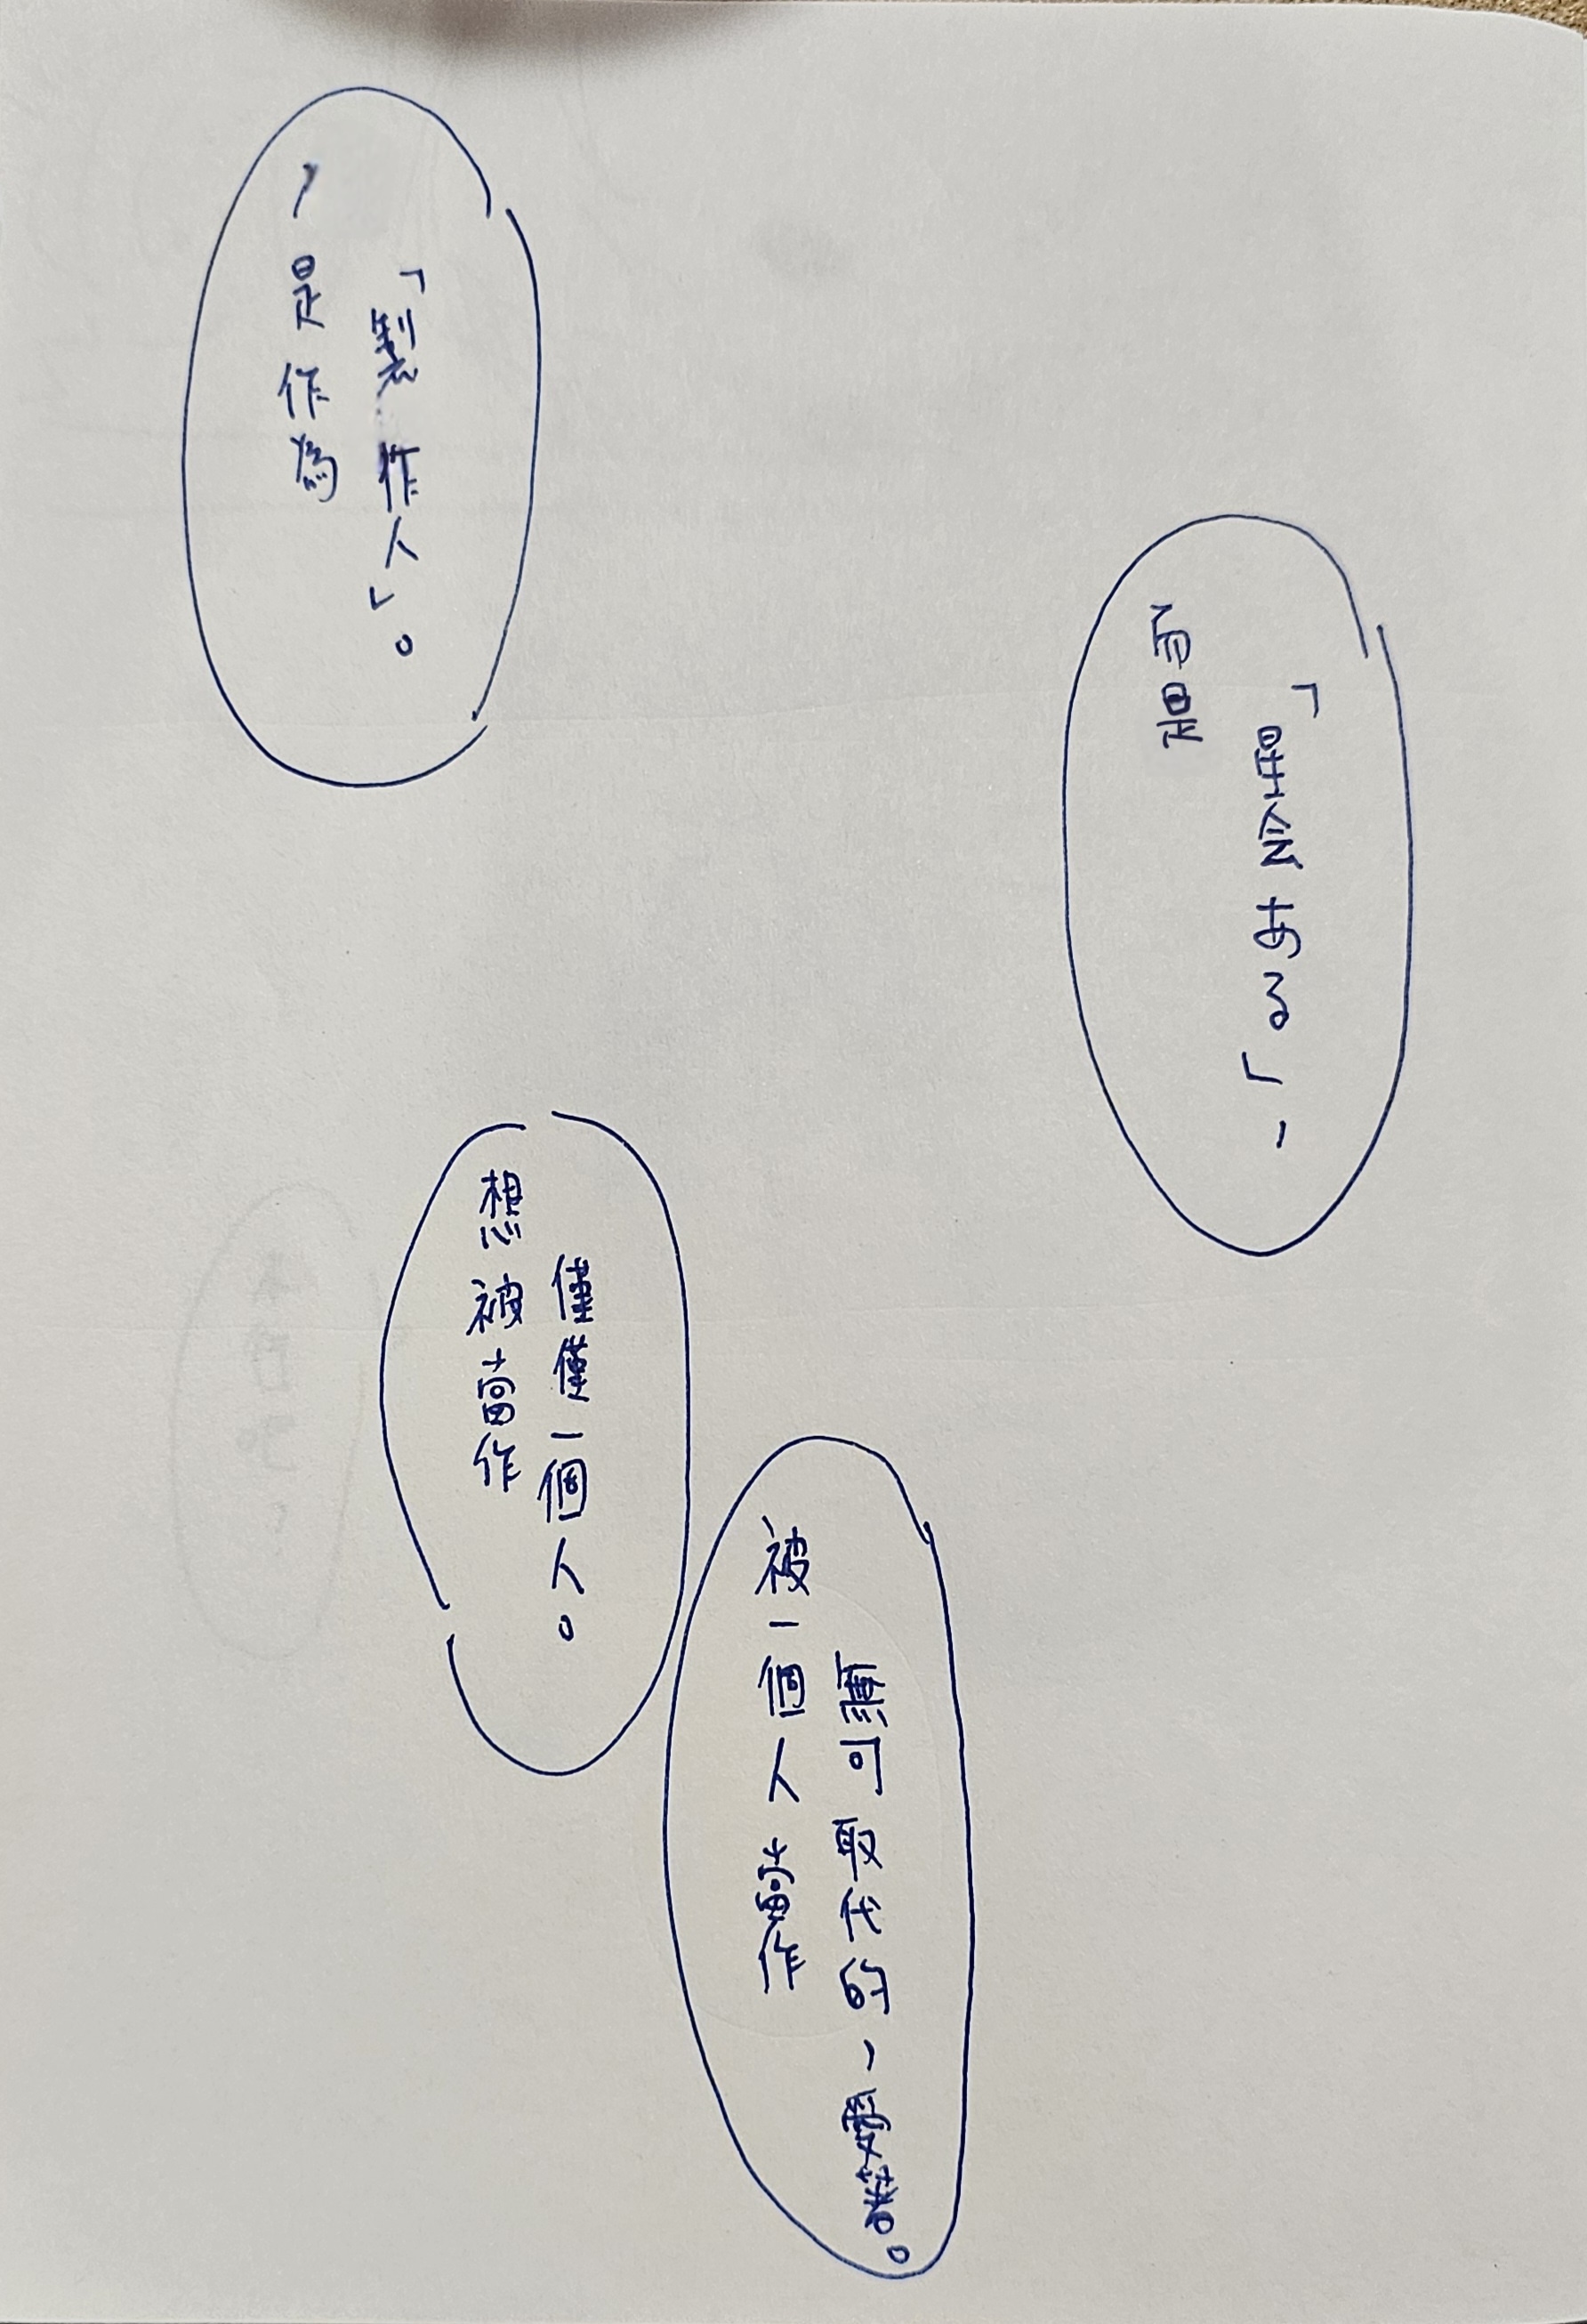 是作為
「製作人」。
想被當作
僅僅一個人。
被一個人當作
無可取代的、愛著。